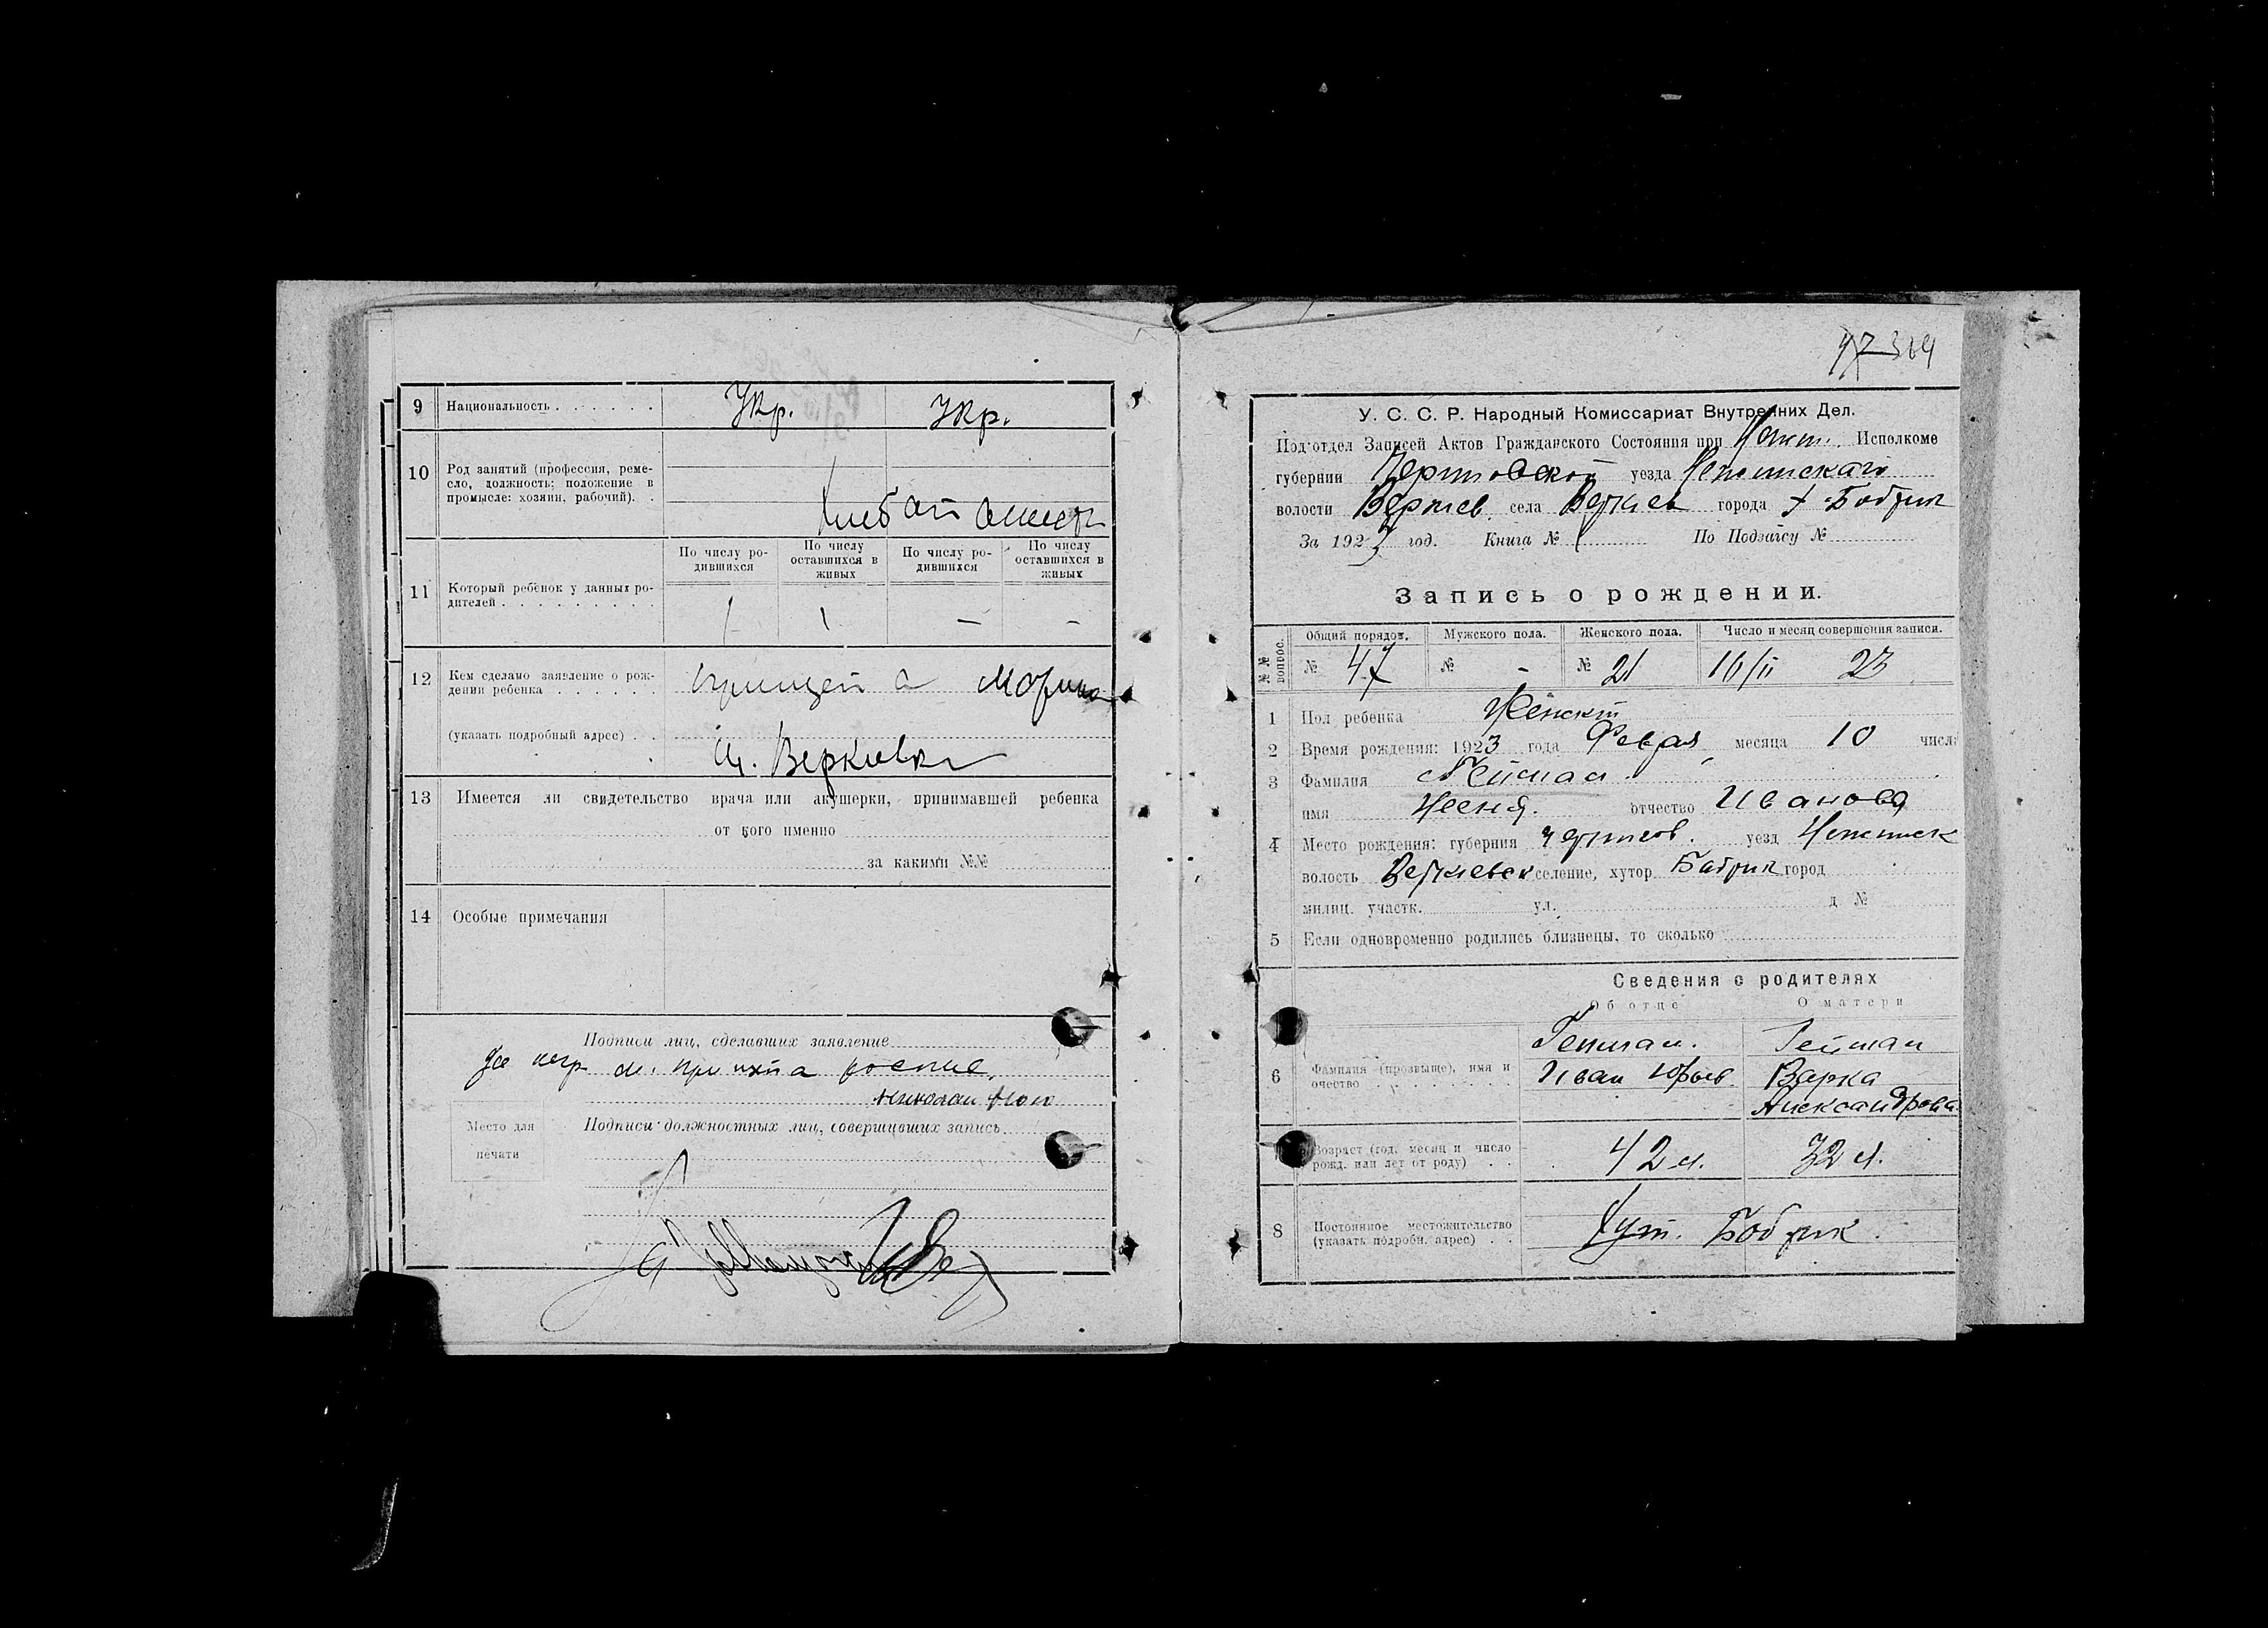 9 Национальность . . . . . . Укр. Укр.
10 Род занятий (профессия, реме-
сло, должность; положение в
промысле: хозяин, рабочий). .
11 Который ребенок у данных ро-
дителей . . . . . . . . .
По числу ро-
дившихся
По числу
оставшихся в
живых
По числу ро-
дившихся
По числу
оставшихся в
живых
1 1 — —
12 Кем сделано заявление о рож-
дении ребенка . . . . . .
(указать подробный адрес) . .
13 Имеется ли свидетельство врача или акушерки, принимавшей ребенка
от кого именно
за какими №№
14 Особые примечания
Подписи лиц, сделавших заявление
Николай
Место для
печати
Подписи должностных лиц, совершивших запись
У. С. С. Р. Народный Комиссариат Внутренних Дел.
Подотдел Записей Актов Гражданского Состояния при Исполкоме
губернии уезда
волости Веркиев. села Веркиев города х. Бобрик
За 1923 год. Книга № По Подзагсу №
Запись о рождении.
№№ вопрос.
Общий порядов. Мужского пола. Женского пола. Число и месяц совершения записи.
№ 47 № - № 21 16/II 23
1 Пол ребенка Женский
2 Время рождения: 1923 года Феврал месяца 10 числа
3 Фамилия Гейман
имя отчество Иванова
4 Место рождения: губерния Чернигов. уезд
волость Веркиевск селение, хутор Бобрик город
милиц. участк. ул. д №
5 Если одновременно родились близнецы, то сколько
Сведения о родителях
Об отце О матери
6 Фамилия (прозвище), имя и
отчество . . . . . . . . .
Гейман. Гейман
Иван Юрьев Варка
Александрова
Возраст (год, месяц и число
рожд. или лет от роду) . .
42 л. 32 л.
8 Постоянное местожительство
(указать подробн. адрес) . .
Хут. Бобрик.